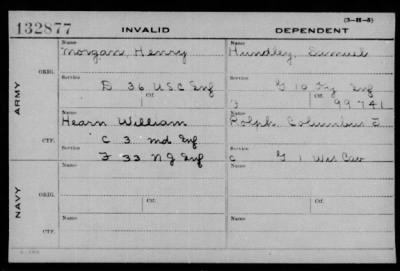 (3-H-5)
132877 INVALID DEPENDENT
Name Name
Morgan, Henry Hundley, Samuel
ARMY ORIG.
Service Service
D 36 U S C Inf G 10 Ky Inf
Ctf. Ctf.
99741
Name Name
Hearn William Rolph Columbus F
CTF.
Service Service
C 3 Md Inf
F 33 N J Inf C G 1 Wis Cav
NAVY ORIG.
Name Name
Ctf. Ctf.
CTF.
Name Name